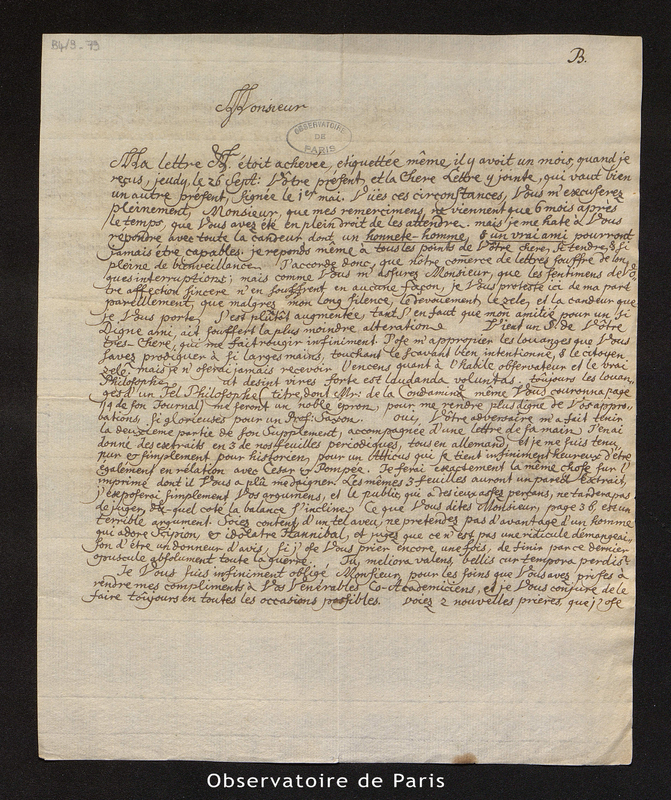 B4/9-79
B.
Monsieur
OBSERVATOIRE DE PARIS
Ma lettre A. étoit achevée, etiquettée même, il y avoit un mois, quand je
reçus, jeudy, le 26 Sept: Vôtre présent, et la Chere Lettre y jointe, qui vaut bien
un autre présent, signée le 1er mai. Vües ces circonstances, Vous m'excuserez
pleinement, Monsieur, que mes remercimens, ne viennent que 6 mois après
le temps, que Vous avez été en plein droit de les attendre. mais je me hate à Vous
repondre avec toute la candeur dont un honnete-homme, & un vrai ami pourront
jamais être capables. je reponds même à tous les points de Vôtre chere, si tendre, & si
pleine de bienveillance. J'accorde donc, que notre comerce de lettres souffre de lon
gues interruptions; mais comme Vous m'assures Monsieur, que les sentimens de Vô
tre affection sincere n'en souffrent en aucune façon, je Vous proteste ici de ma part
pareillement, que malgrez mon long silence, le devouement, le zele, et la candeur que
je Vous porte, s'est plûtôt augmentée, tant s'en faut que mon amitié pour un si
Digne ami, ait souffert la plus moindre alteration. Vient un § de Vôtre
tres-Chere, qui me fait rougir infiniment. J'ose m'approprier les louanges que Vous
savez prodiguer à si larges mains, touchant le sçavant bien intentionné, & le citoyen
zelé, mais je n'oserai jamais recevoir l'encens quant à l'habile observateur et le vrai
Philosophe. ut desint vires forte est laudanda voluntas. toujours les louan
ges d'un Tel Philosophe (titre dont Mr: de la Condamine même Vous couronna page
19 de son Journal) me seront un noble épron, pour me rendre plus digne de Vos appro
bations, si glorieuses pour un Prof: Saxon. Oui, Vôtre adversaire m'a fait tenir
la deuxieme partie de son Supplement, accompagnée d'une lettre de sa main; J'en ai
donné des extraits en 3 de nos feuilles periodiques, tous en allemand, et je me suis tenu
pur & simplement pour historien, pour un Atticus qui je tient infiniment heureux d'être
egalement en relation avec Cesar & Pompée. Je ferai exactement la même chose sur l'
imprimé dont il Vous a plû me daigner. Les mêmes 3 feuilles auront un pareil extrait,
j'exposerai simplement Vos argumens, et le public, qui a des ieux assés perçans, ne tardera pas
de juger, de quel coté la balance s'incline. Ce que Vous dites Monsieur, page 36 est un
terrible argument. Soiez content, d'un tel aveu, ne pretendez pas d'avantage d'un homme
qui adore Scipion, & idolatre Hannibal, et jugez que ce n'est pas une ridicule démangeai
son d'être un donneur d'avis, si j'ose Vous prier encore une fois, de finir par ce dernier
opuscule absolument toute la guerre. Tu, meliora valens, bellis cur tempora perdis?
Je Vous suis infiniment obligé Monsieur, pour les soins que Vous avez prises à
rendre mes compliments à Vos Vénérables Co-Academiciens, et je Vous conjure de le
faire toûjours en toutes les occasions possibles. voiez 2 nouvelles prieres, que j'ose
Observatoire de Paris